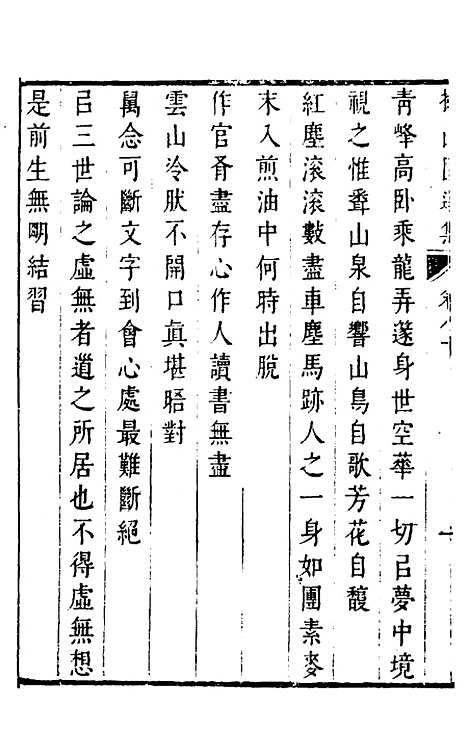 青峰高臥乘龍弄邃身世空華一切㠯夢中境
視之惟聽山泉自響山鳥自歌芳花自馥
紅塵滾滾數盡車塵馬跡人之一身如團素麥
末入煎油中何時出脫
作官胥盡存心作人讀書無盡
雲山冷肰不開口眞堪晤對
萬念可斷文字到會心處最難斷絕
㠯三世論之虛無者道之所居也不得虛無想
是前生無朙結習